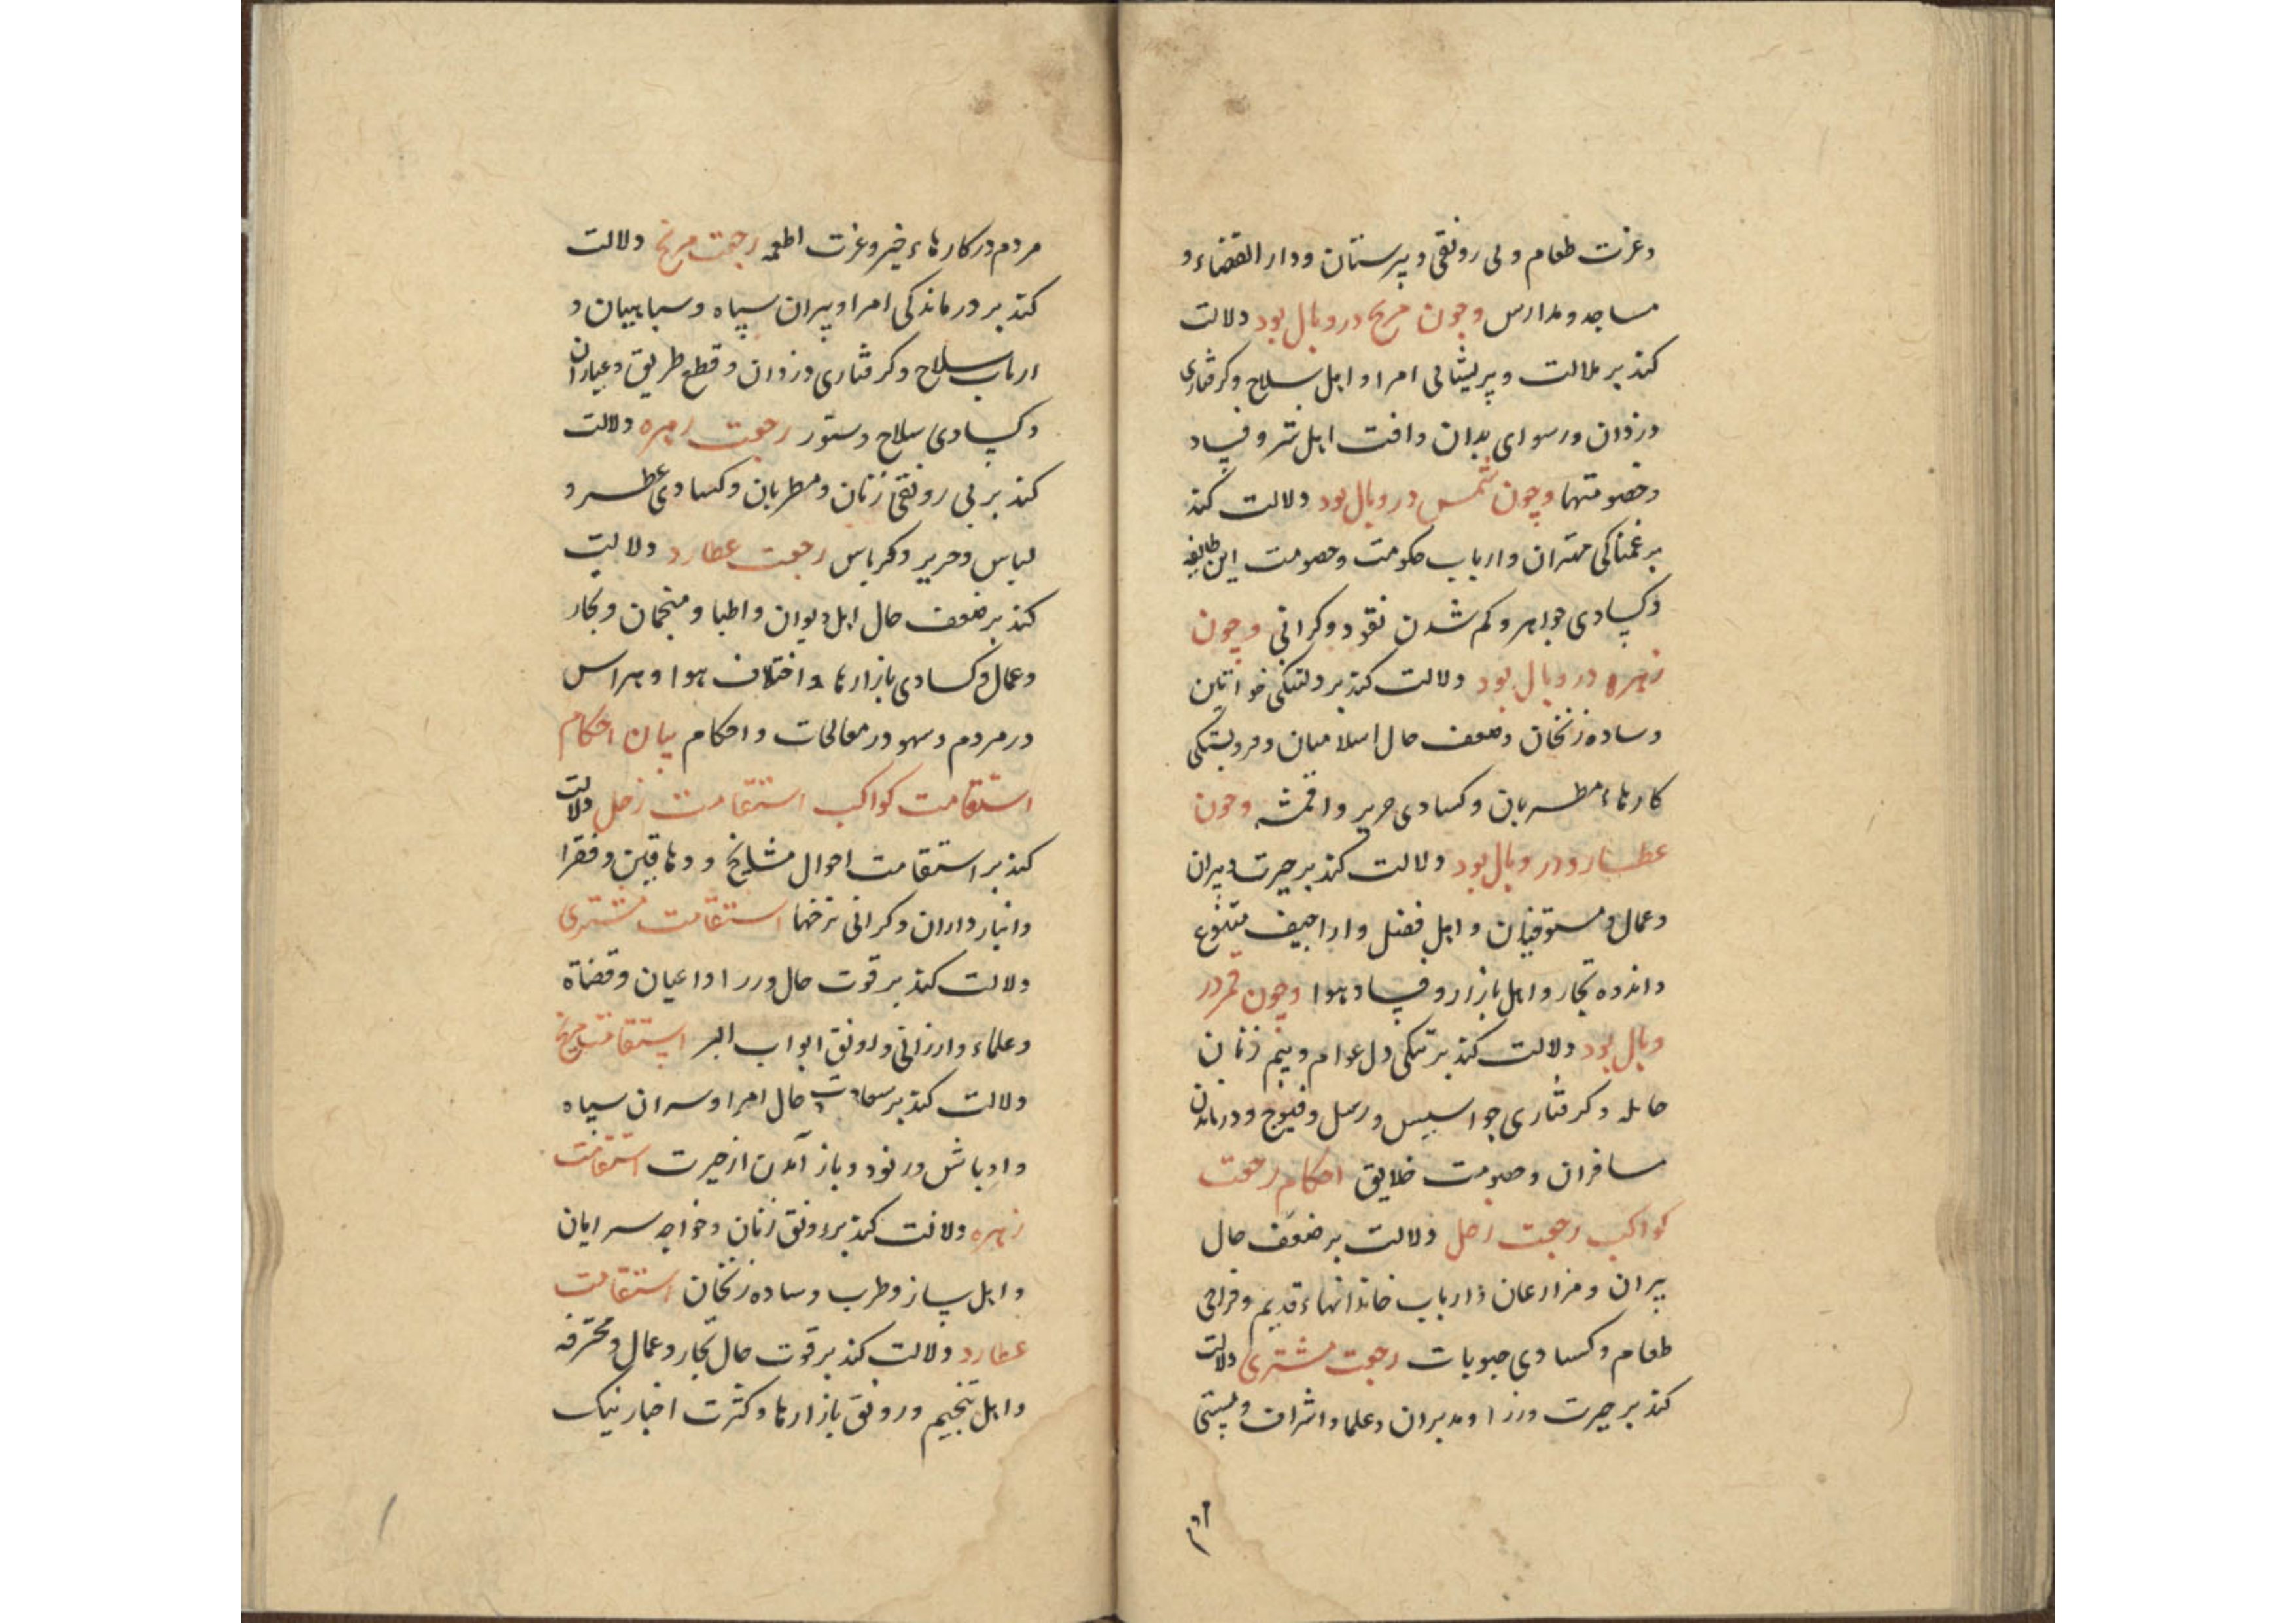 وعزت طعام و بی رونقی دبیرستان و دار القضاء و
مساجد و مدارس و چون مریخ در وبال بود دلالت
کند بر ملالت و پریشانی امرا و اهل سلاح و کرفتاری
دزدان و رسوای بدان و افت اهل شر و فساد
و خصومتها و چون شمس در وبال بود دلالت کند
بر غمناکی مهتران و ارباب حکومت و خصومت این طایفه
و کسادی جواهر و کم شدن نقود و کرانی و چون
زهره در وبال بود دلالت کند بر دلتنکی خواتین
و ساده زنخان و ضعف حال اسلامیان و فروبستکی
کارهاء مطربان و کسادی حریر و اقمشه و چون
عطارد در وبال بود دلالت کند بر حیرت دبیران
و عمال و مستوفیان و اهل فضل و اراجیف متنوع
و اندوه تجار و اهل بازار و فساد هوا و چون قمر در
وبال بود دلالت کند بر تنکی دل عوام و بیم زنان
حامله و کرفتاری جواسیس و رسل و فیوج و درماندن
مسافران و خصومت خلایق احکام رجعت
کواکب رجعت زحل دلالت بر ضعف حال
پیران و مزارعان و ارباب خاندانهاء قدیم و فراخی
طعام و کسادی حبوبات رجعت مشتری دلالت
کند بر حیرت وزرا و مدبران و علما و اشراف و سستی
مردم در کارهاء خیر و عزت اطعمه رجعت مریخ دلالت
کند بر درماندکی امرا و پیران سپاه و سپاهیان و
ارباب سلاح و کرفتاری دزدان و قطع طریق و عیاران
و کسادی سلاح و ستور رجعت زهره دلالت
کند بر بی رونقی زنان و مطربان و کسادی عطر و
لباس و حریر و کرباس رجعت عطارد دلالت
کند بر ضعف حال اهل دیوان و اطبا و منجمان و تجار
و عمال و کسادی بازارها و اختلاف هوا و هراس
در مردم و سهو در معالجات و احکام بیان احکام
استقامت کواکب استقامت زحل دلالت
کند بر استقامت احوال مشایخ و دهاقین و فقرا
و انبار داران و کرانی نرخها استقامت مشتری
دلالت کند بر قوت حال وزرا و اعیان و قضاة
و علماء و ارزانی و رونق ابواب البر استقامت مریخ
دلالت کند بر سعادت حال امرا و سران سپاه
و اوباش و رنود و باز آمدن از حیرت استقامت
زهره دلالت کند بر رونق زنان و خواجه سرایان
و اهل ساز و طرب و ساده زنخان استقامت
عطارد دلالت کند بر قوت حال تجار و عمال و محترفه
و اهل تنجیم و رونق بازارها و کثرت اخبار نیک